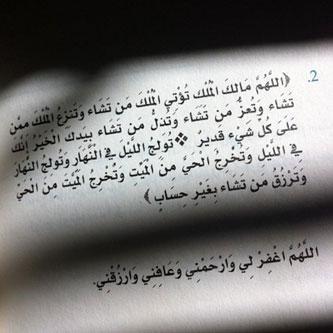 2. ﴿اللَّهُمَّ مَالِكَ الْمُلْكِ تُؤْتِي الْمُلْكَ مَن تَشَاء وَتَنزِعُ الْمُلْكَ مِمَّن
تَشَاء وَتُعِزُّ مَن تَشَاء وَتُذِلُّ مَن تَشَاء بِيَدِكَ الْخَيْرُ إِنَّكَ
عَلَىَ كُلِّ شَيْءٍ قَدِيرٌ ❖ تُولِجُ اللَّيْلَ فِي النَّهَارِ وَتُولِجُ النَّهَارَ
فِي اللَّيْلِ وَتُخْرِجُ الْحَيَّ مِنَ الْمَيِّتِ وَتُخْرِجُ الْمَيِّتَ مِنَ الْحَيِّ
وَتَرْزُقُ مَن تَشَاءُ بِغَيْرِ حِسَابٍ﴾
اللَّهُمَّ اغْفِرْ لِي وَارْحَمْنِي وَعَافِنِي وَارْزُقْنِي.